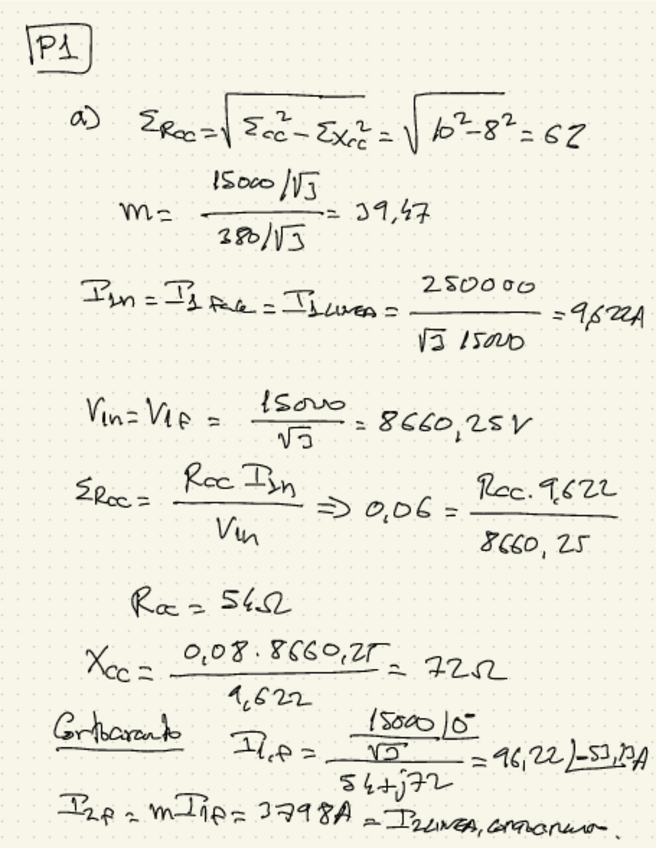 P1
a) ΣRcc = √(Σcc² - ΣXcc²) = √(10² - 8²) = 6%
m = (15000/√3) / (380/√3) = 39,47
I1n = I1 fase = I1LINEA = 250000 / (√3 15000) = 9,622A
V1n = V1f = 15000 / √3 = 8660,25V
ΣRcc = (Rcc I1n) / V1n ⇒ 0,06 = (Rcc. 9,622) / 8660,25
Rcc = 54Ω
Xcc = (0,08 . 8660,25) / 9,622 = 72Ω
Cortocircuito I1,f = (15000∠0° / √3) / (54+j72) = 96,22∠-53,13A
I2f = m I1f = 3798A = I2LINEA, cortocircuito.